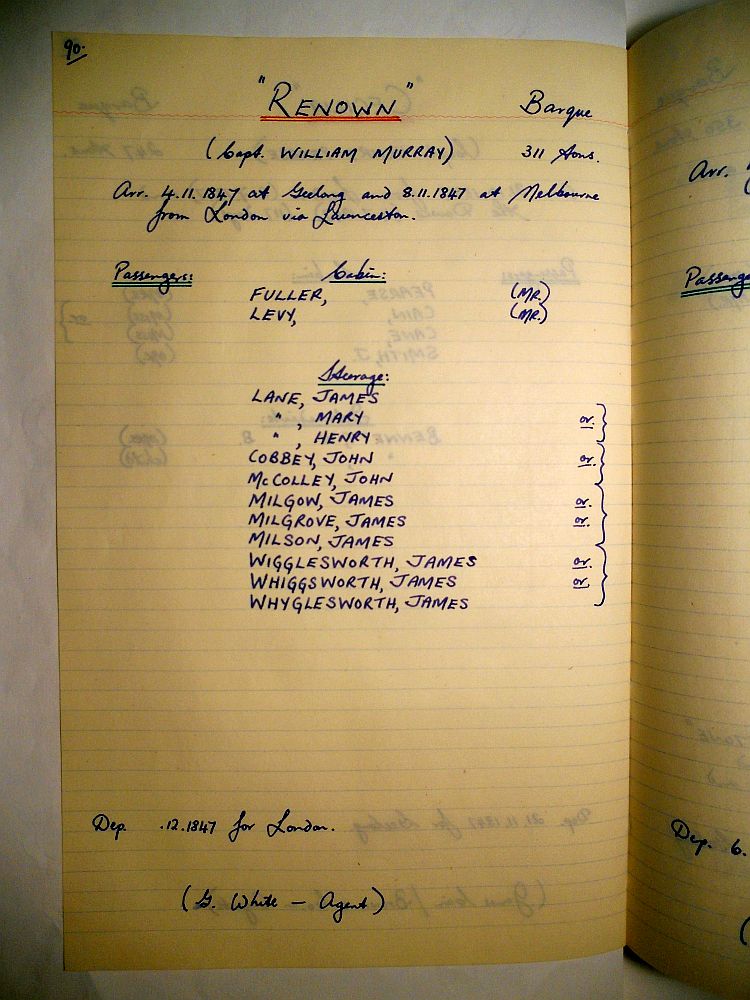 90.
"RENOWN" Barque
(Capt. WILLIAM MURRAY) 311 tons.
Arr. 4.11.1847 at Geelong and 8.11.1847 at Melbourne
from London via Launceston.
Passengers: Cabin:
FULLER, (MR.)
LEVY, (MR.)
Steerage:
LANE, JAMES
" , MARY or
" , HENRY
COBBEY, JOHN or
McCOLLEY, JOHN
MILGOW, JAMES or
MILGROVE, JAMES or
MILSON, JAMES
WIGGLESWORTH, JAMES or
WHIGGSWORTH, JAMES or
WHYGLESWORTH, JAMES
Dep. .12.1847 for London.
(G. White – Agent)
Arr.
Passenge
Dep. 6.